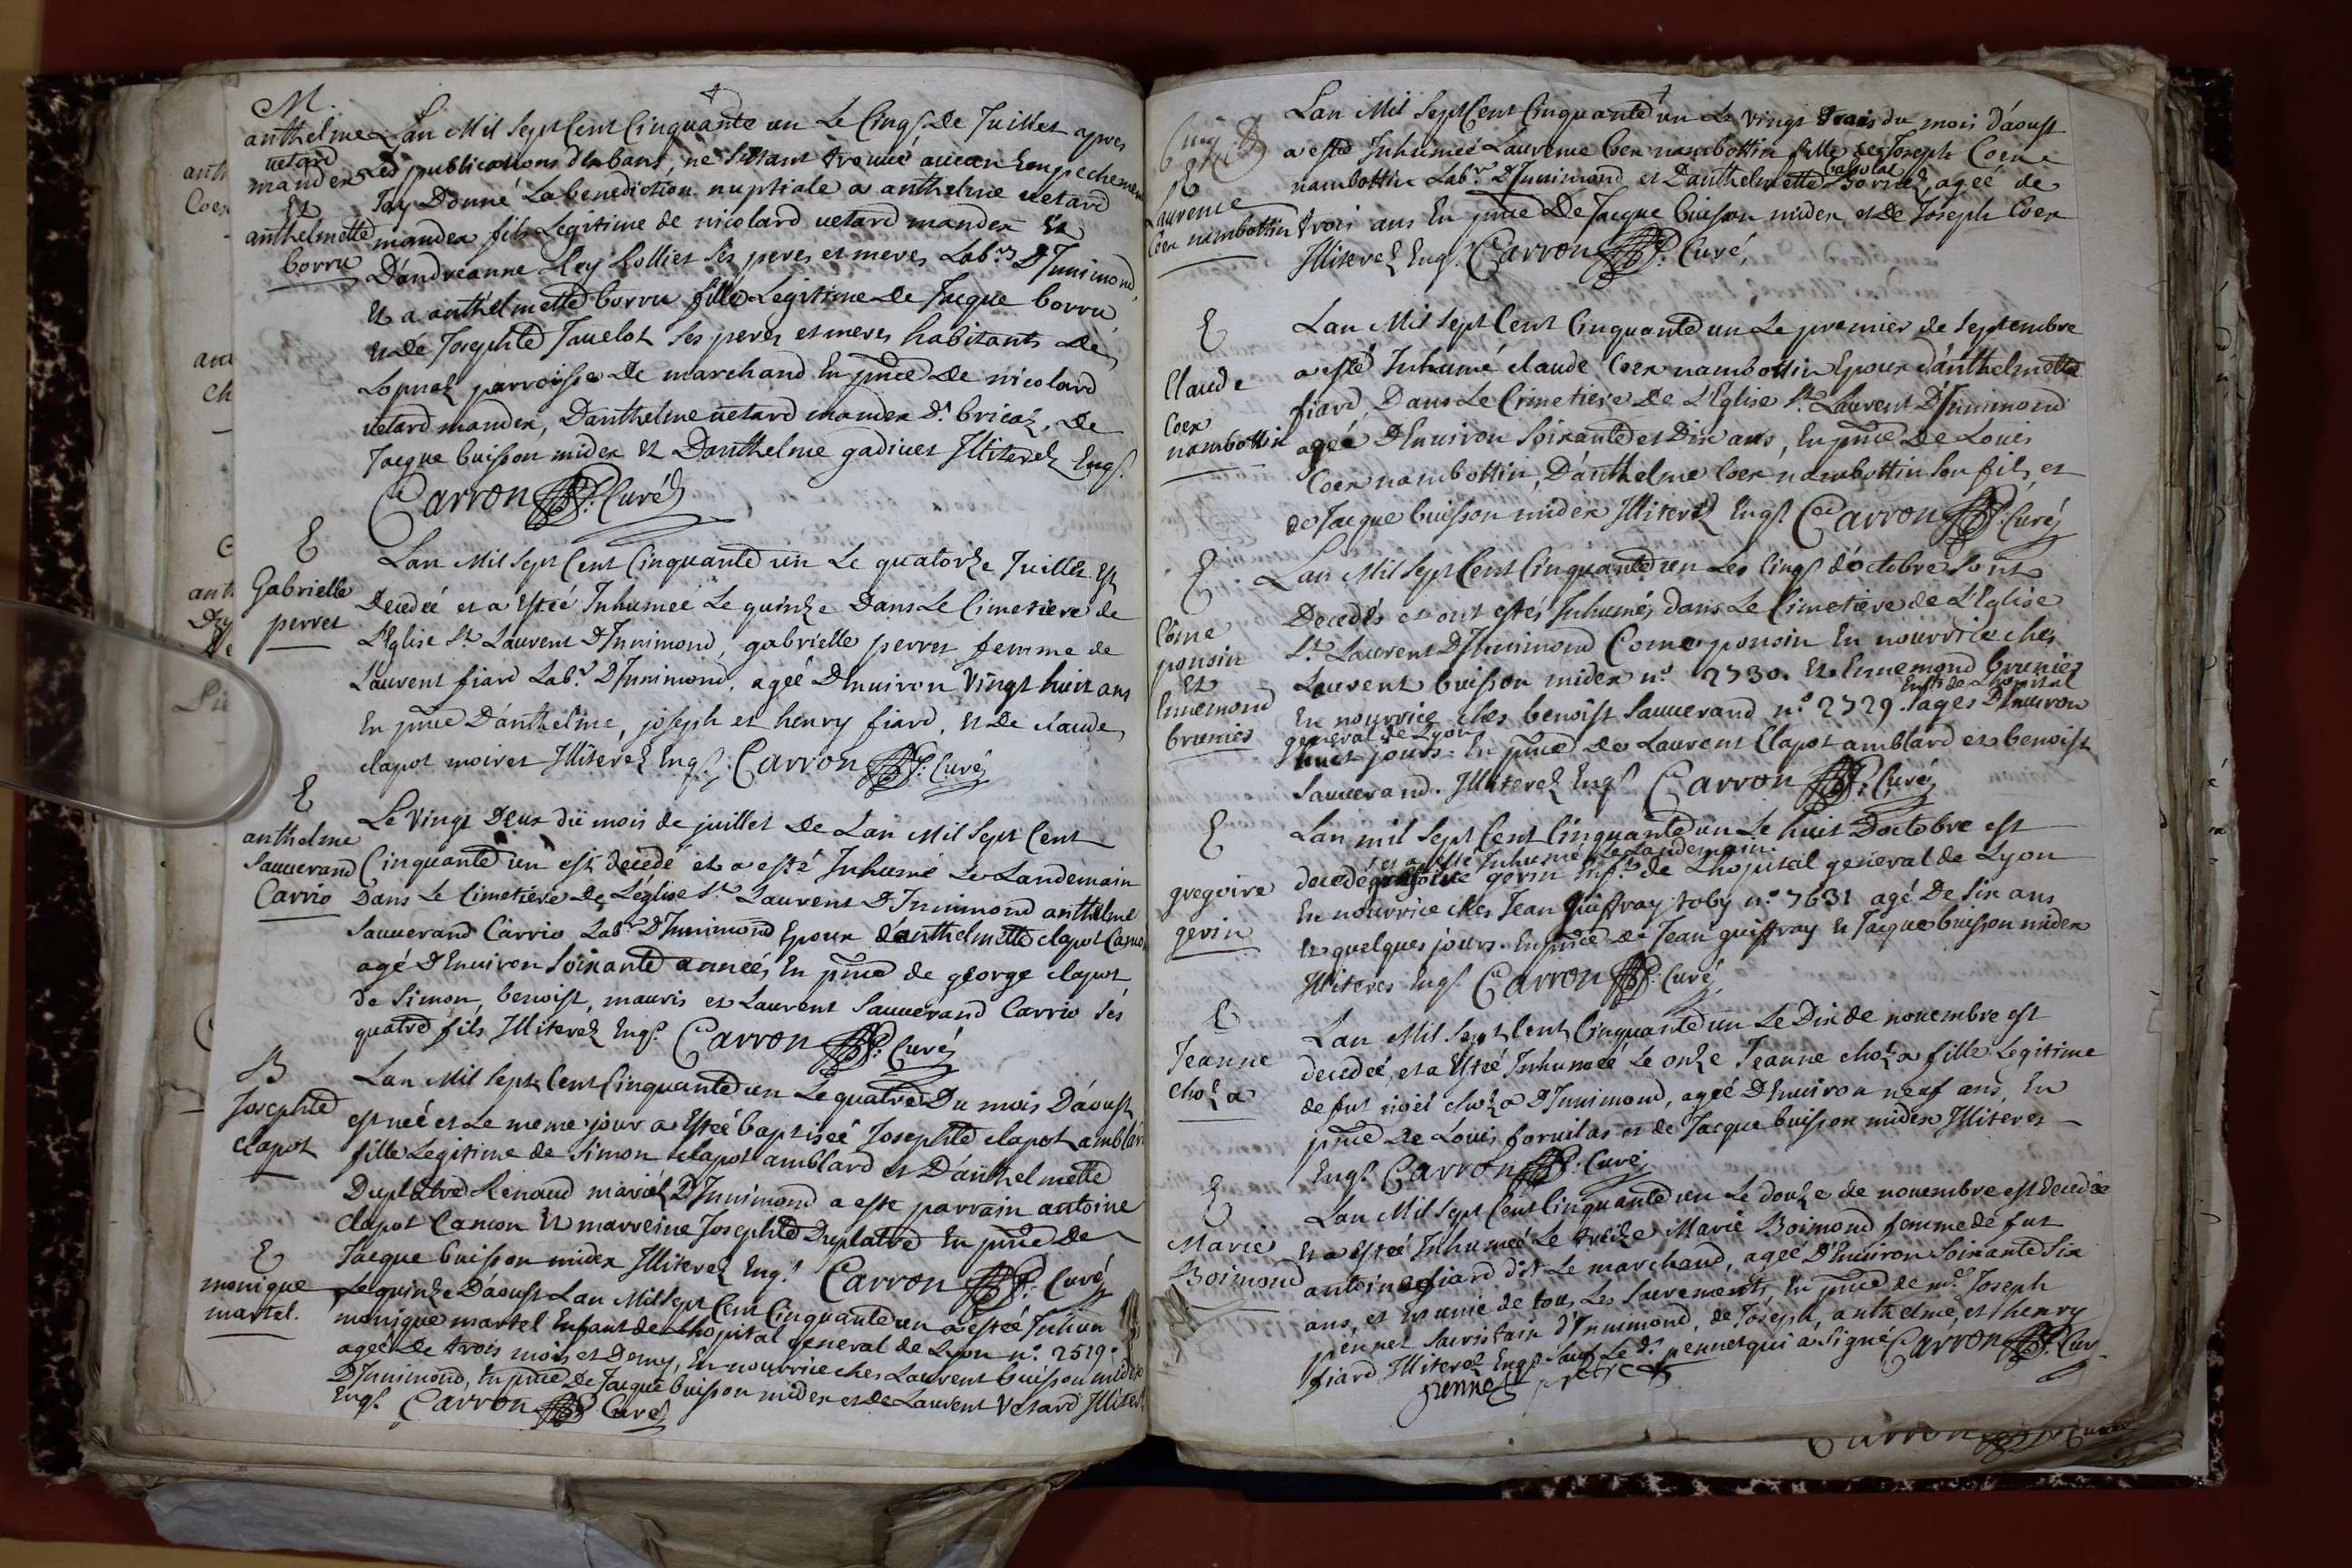 M.
anthelme
uetard
mander
Et
anthelmette
borru
Lan Mil Sept Cent Cinquante un Le Cinqs. De Juillet apres
Les publications des bans, ne s'etant trouué aucun Empechement
Jay Donné La benediction nuptiale a anthelme uetard
mander fils Legitime de nicolard uetard mander Et
D'andreanne Rey Rollier Ses peres et meres Labrs. D'Innimond,
Et a anthelmette borru fille Legitime de Jacque borru
et de Josephte Jauelot Ses peres et meres habitants de
Lopnez parroisse de marchand En pnce De nicolard
uetard mander, Danthelme uetard mander Dt. bricoz, De
Jacque buisson mider Et Danthelme gadiuet Illiterez Enqs.
Carron P: Curé
E
Gabrielle
perret
Lan Mil Sept Cent Cinquante un Le quatorze Juillet Est
Decedéé et a Estéé Inhuméé Le quinze Dans Le Cimetiere de
L'Eglise St. Laurent D'Innimond, gabrielle perret femme de
Laurent fiard Labr. D'Innimond, agéé D'Enuiron Vingt huit ans
En pnce D'anthelme, joseph et henry fiard, Et De claude
clapot moiret Illiterez Enqs. Carron P: Curé
E
anthelme
Sauuerand
Carrio
Le Vingt Deux du mois de juillet De Lan Mil Sept Cent
Cinquante un est decedé et a esté Inhumé Le Landemain
Dans Le Cimetiere de L'eglise St. Laurent D'Innimond anthelme
Sauuerand Carrio Labr. D'Innimond Epoux d'anthelmette clapot Camon
agé D'Enuiron Soixante années, En pnce de george clapot,
de Simon, benoist, mauris et Laurent Sauuerand Carrio Ses
quatre fils Illiterez Enqs. Carron P: Curé
B
Josephte
clapot
Lan Mil Sept Cent Cinquante un Le quatre Du mois D'aoust
est néé et Le meme jour a Estéé baptiséé Josephte clapot amblard
fille Legitime de Simon clapot amblard et D'anthelmette
Duplatre Renaud mariéz D'Innimond a este parrain antoine
clapot Camon Et marreine Josephte Duplatre En pnce De
Jacque buisson mider Illiterez Enqs. Carron P: Curé
E
monique
martel.
Le quinze D'aoust Lan Mil Sept Cent Cinquante un a estéé Inhum
monique martel Enfant de Lhopital general de Lyon no. 2519.
agéé De trois mois et Demy, En nourrice ches Laurent buisson mider
D'Innimond, En pnce De Jacque buisson mider et de Laurent Vetard Illiter.
Enqs. Carron P: Curé
E
Laurence
Coer nambottin
Lan Mil Sept Cent Cinquante un Le Vingt trois du mois d'aoust
a esté Inhuméé Laurence Coer nambottin fille de Joseph Coer
nambottin Labr. D'Innimond et Danthelmette Borriez, agéé de
trois ans En pnce De Jacque buisson mider et De Joseph Coer
Illiterez Enqs. Carron P: Curé,
E
Claude
Coer
nambottin
Lan Mil Sept Cent Cinquante un Le premier de Septembre
a esté Inhumé claude Coer nambottin Epoux d'anthelmette
fiard, Dans Le Cimetiere De L'Eglise St. Laurent D'Innimond
agéé D'Enuiron Soixante et Dix ans, En pnce De Louis
Coer nambottin, D'anthelme Coer nambottin Son fils, et
de Jacque buisson mider Illiteréz Enqs. Carron P: Curé
E
Côme
ponsin
Et
Ennemond
brunier
Lan Mil Sept Cent Cinquante un Les Cinqs. d'octobre Sont
Decedés et ont estés Inhumés dans Le Cimetiere de L'Eglise
St. Laurent D'Innimond Come ponsin En nourrice ches
Laurent buisson mider no. 2730. Et Ennemond brunier
Enfts. de Lhopital
En nourrice ches benoist Sauuerand no. 2729 agés D'Enuiron
general de Lyon
huit jours. En pnce de Laurent Clapot amblard et benoist
Sauuerand. Illiterez Enqs. Carron P: Curé
E
gregoire
gerin
Lan mil Sept Cent Cinquante un Le huit Doctobre est
et a esté Inhumé Le Landemain
decedé gregoire gerin Enft. de Lhopital general de Lyon
En nourrice ches Jean Guiffray toby no. 7631 agé De Six ans
Et quelques jours. En pnce de Jean guiffray Et Jacque buisson mider
Illiteres Enqs. Carron P: Curé
E
Jeanne
choza
Lan Mil Sept Cent Cinquante un Le Dix de nouembre est
decedéé, et a Estéé Inhuméé Le onze Jeanne choza fille Legitime
de fut noël choza D'Innimond, agéé D'Enuiron neuf ans, En
pnce De Louis foruilas et de Jacque buisson mider Illiteres
Enqs. Carron P: Curé
E
Marie
Boimond
Lan Mil Sept Cent Cinquante un Le douze de nouembre est decedéé
Et a Estéé Inhuméé Le treize Marie Boimond femme de fut
antoine fiard dit Le marchand, agéé D'Enuiron Soixante Six
ans, et Et munie de tous Les Sacrements, En pnce de mre. Joseph
pennet Sacristain d'Innimond, de Joseph, anthelme, et henry
fiard Illiterez Enqs. Sauf Le dt. pennet qui a Signé Carron P: Cur
pennet pretre
Carron P: Curé